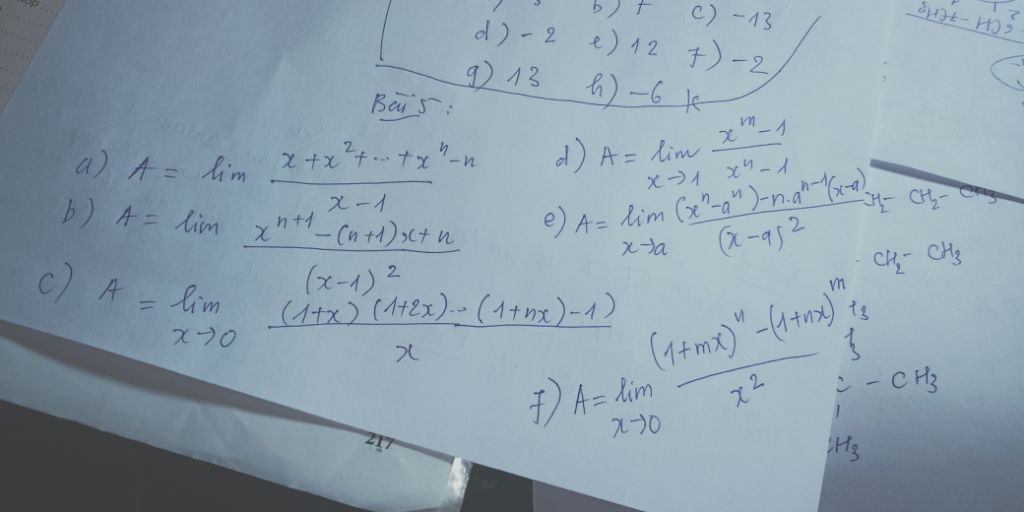 b) 7 c) -13
d) - 2 e) 12 f) -2
g) 13 h) -6 k
Bài 5:
a) A = lim x + x^2 + ... + x^n - n / x - 1
b) A = lim x^{n+1} - (n+1)x + n / (x-1)^2
c) A = lim x→0 (1+x) (1+2x)... (1+nx) - 1) / x
d) A = lim x→1 x^m - 1 / x^n - 1
e) A = lim x→a (x^n - a^n) - n.a^{n-1}(x-a) / (x-a)^2
f) A = lim x→0 (1+mx)^n - (1+nx)^m / x^2
CH2 - CH3
- CH2 - CH3
C - CH3
CH3
217